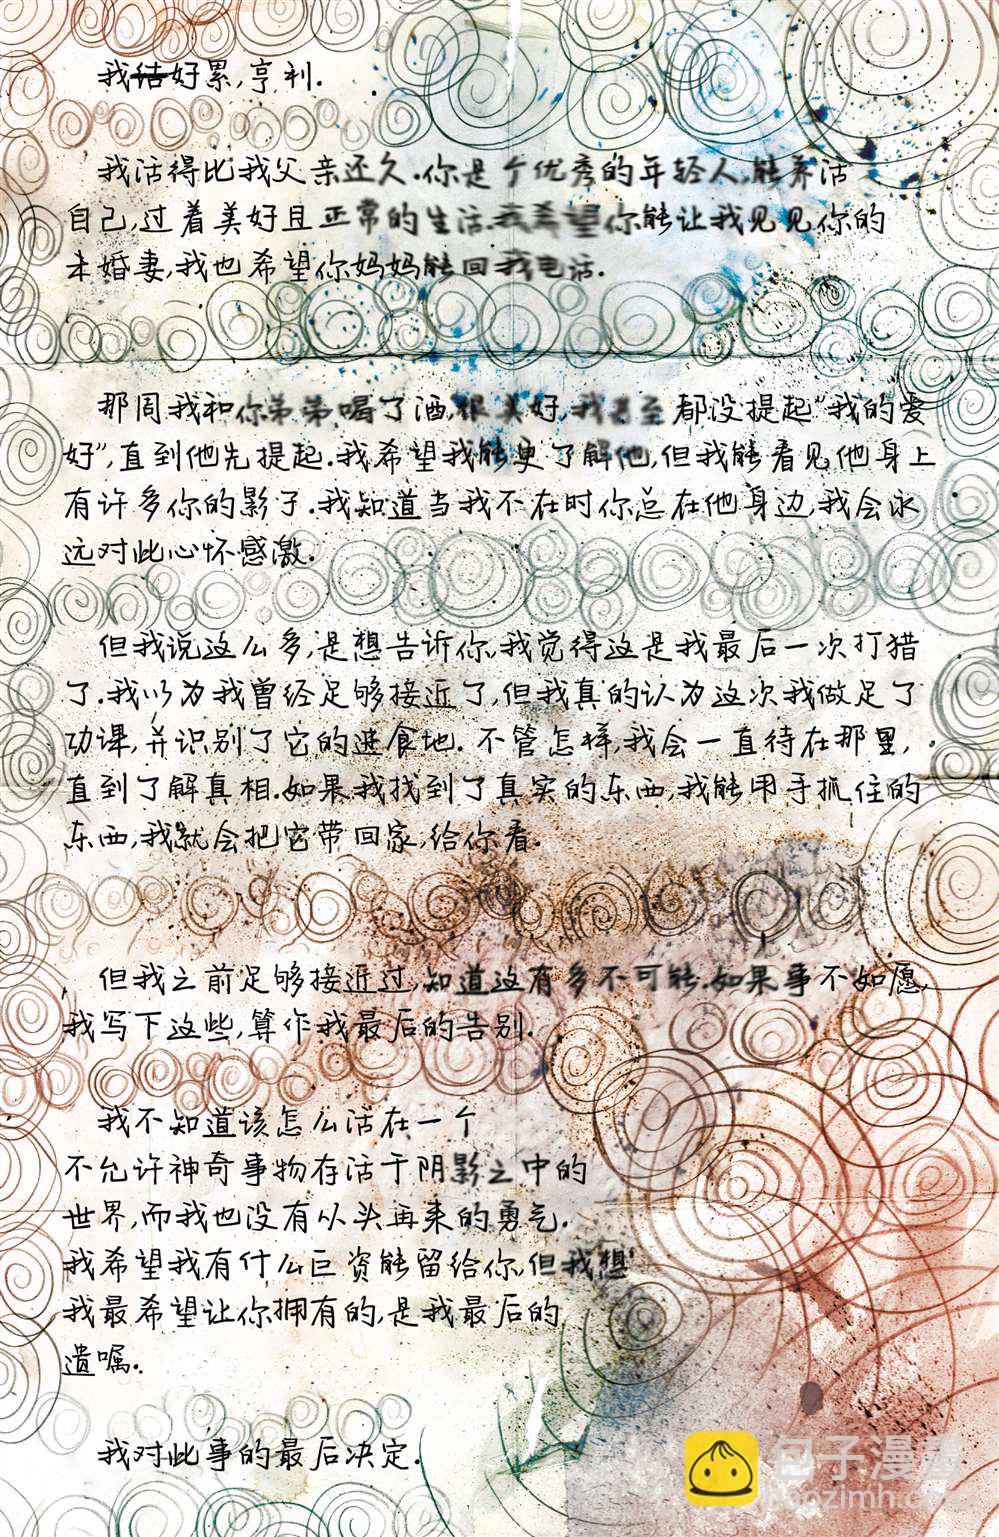 我结好累,亨利.
我活得比我父亲还久.你是个优秀的年轻人,能养活
自己,过着美好且正常的生活.我希望你能让我见见你的
未婚妻,我也希望你妈妈能回我电话.
那周我和你弟弟喝了酒,很美好,我甚至都没提起“我的爱
好”,直到他先提起.我希望我能更了解他,但我能看见他身上
有许多你的影子.我知道当我不在时你总在他身边,我会永
远对此心怀感激.
但我说这么多,是想告诉你,我觉得这是我最后一次打猎
了.我以为我曾经足够接近了,但我真的认为这次我做足了
功课,并识别了它的进食地.不管怎样,我会一直待在那里,
直到了解真相.如果我找到了真实的东西,我能用手抓住的
东西,我就会把它带回家,给你看.
但我之前足够接近过,知道这有多不可能.如果事不如愿,
我写下这些,算作我最后的告别.
我不知道该怎么活在一个
不允许神奇事物存活于阴影之中的
世界,而我也没有从头再来的勇气.
我希望我有什么巨资能留给你,但我想
我最希望让你拥有的,是我最后的
遗嘱.
我对此事的最后决定.
包子漫畫
baozimh.com